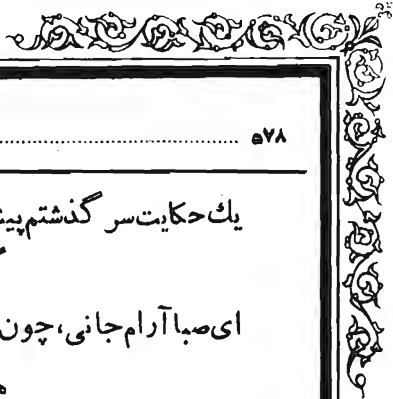 ۵۷۸
یك حکایت سر گذشتم
ای صبا آرام جانی، چون